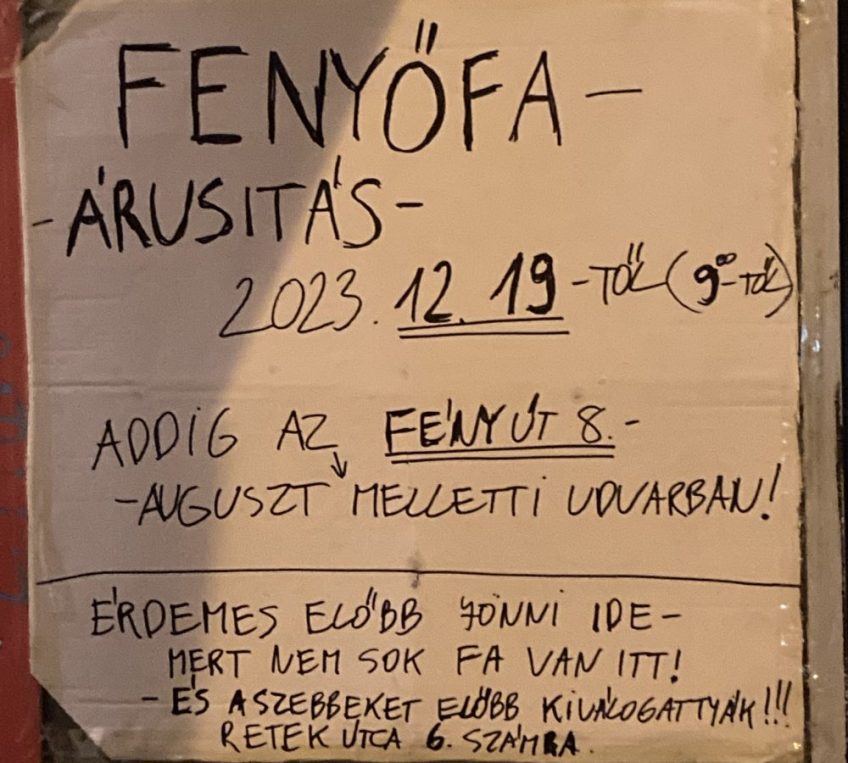 FENYŐFA-
-ÁRUSITÁS-
2023. 12. 19-TŐL (9⁰⁰-TŐL)
ADDIG AZ FÉNY ÚT 8.-
-AUGUSZT MELLETTI UDVARBAN!
ÉRDEMES ELŐBB JÖNNI IDE-
MERT NEM SOK FA VAN ITT!
-ÉS A SZEBBEKET ELŐBB KIVÁLOGATTYÁK!!!
RETEK ÚTCA 6. SZÁMRA.